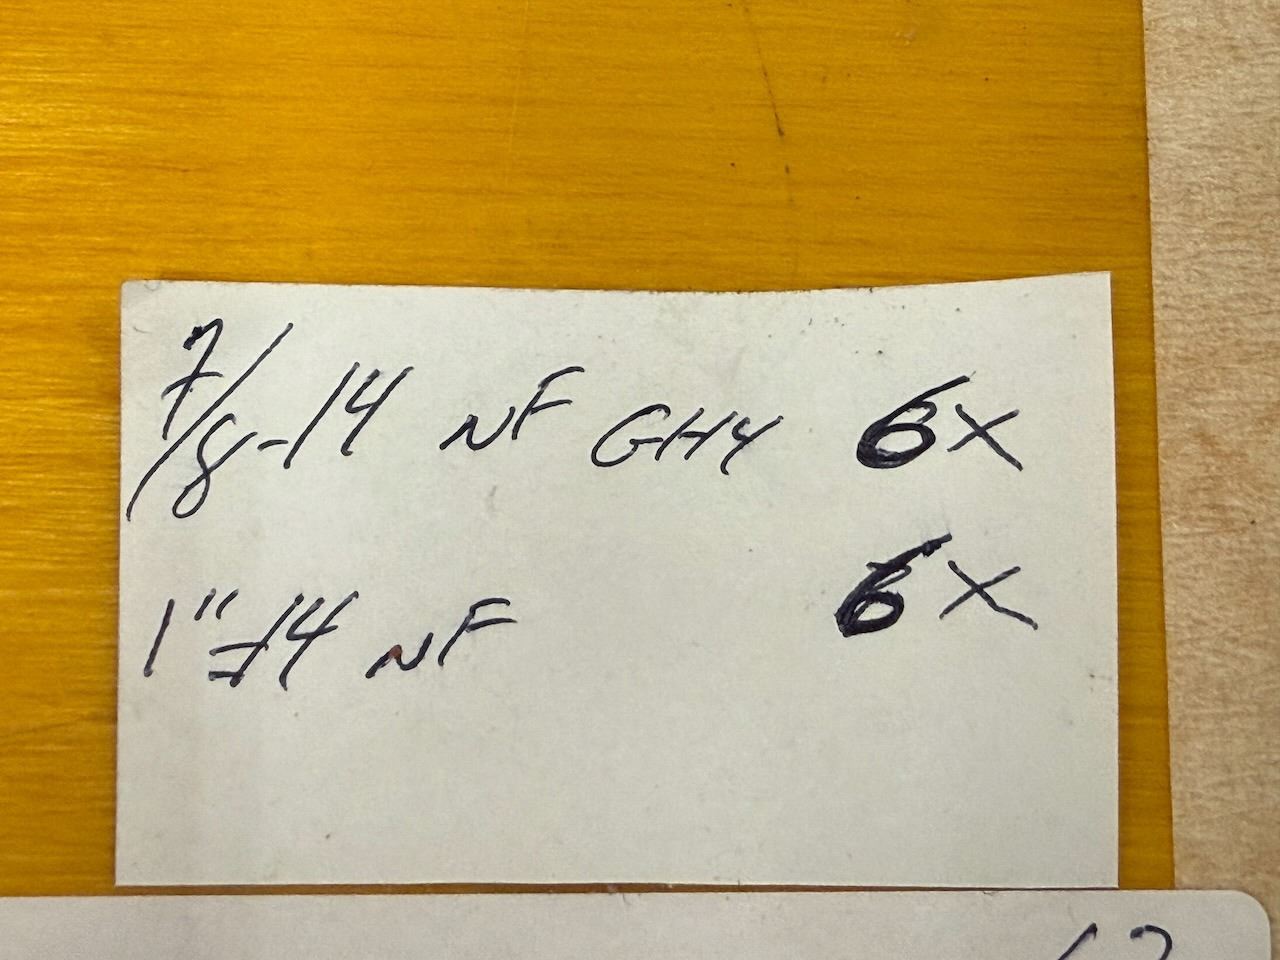 7/8-14 NF GH4 6X
1"-14 NF 6X